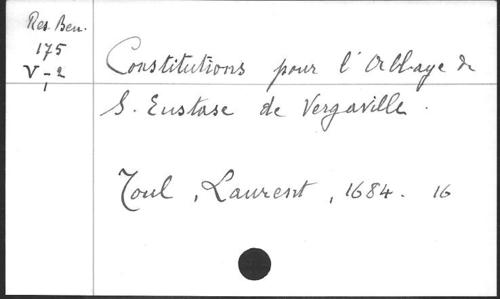 Res. Ben.
175
V-2
1
Constitutions pour l'Abbaye de
S. Eustase de Vergaville.
Toul, Laurent, 1684. 16